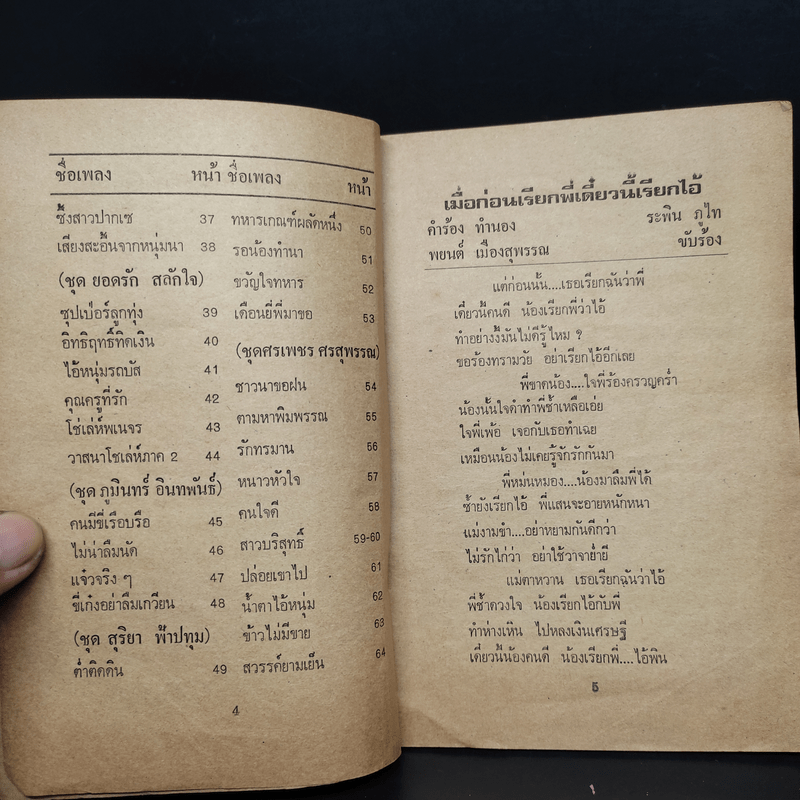 ชื่อเพลง หน้า ชื่อเพลง หน้า
ซึ้งสาวปากเซ 37
เสียงสะอื้นจากหนุ่มนา 38
(ชุด ยอดรัก สลักใจ)
ซุปเป่อร์ลูกทุ่ง 39
อิทธิฤทธิ์ทิดเงิน 40
ไอ้หนุ่มรถบัส 41
คุณครูที่รัก 42
โซ่เล่ห์พเนจร 43
วาสนาโชเล่ห์ภาค 2 44
(ชุด ภูมินทร์ อินทพันธ์)
คนมีขี่เรือบรือ 45
ไม่น่าลืมนัด 46
แจ๋วจริง ๆ 47
ขี่เก๋งอย่าลืมเกวียน 48
(ชุด สุริยา ฟ้าปทุม)
ต่ำติดดิน 49
ทหารเกณฑ์ผลัดหนึ่ง 50
รอน้องทำนา 51
ขวัญใจทหาร 52
เดือนยี่พี่มาขอ 53
(ชุดศรเพชร ศรสุพรรณ)
ชาวนาขอฝน 54
ตามหาพิมพรรณ 55
รักทรมาน 56
หนาวหัวใจ 57
คนใจดี 58
สาวบริสุทธิ์ 59-60
ปล่อยเขาไป 61
น้ำตาไอ้หนุ่ม 62
ข้าวไม่มีขาย 63
สวรรค์ยามเย็น 64
4
เมื่อก่อนเรียกพี่เดี๋ยวนี้เรียกไอ้
คำร้อง ทำนอง ระพิน ภูไท
พยนต์ เมืองสุพรรณ ขับร้อง
แต่ก่อนนั้น....เธอเรียกฉันว่าพี่
เดี๋ยวนี้คนดี น้องเรียกพี่ว่าไอ้
ทำอย่างงี้มันไม่ดีรู้ไหม ?
ขอร้องทรามวัย อย่าเรียกไอ้อีกเลย
พี่ขาดน้อง....ใจพี่ร้องครวญคร่ำ
น้องนั้นใจดำทำพี่ช้ำเหลือเอ่ย
ใจพี่เพ้อ เจอกับเธอทำเฉย
เหมือนน้องไม่เคยรู้จักรักกันมา
พี่หม่นหมอง....น้องมาลืมพี่ได้
ซ้ำยังเรียกไอ้ พี่แสนจะอายหนักหนา
แม่งามขำ....อย่าหยามกันดีกว่า
ไม่รักไก่ว่า อย่าใช้วาจาย่ำยี
แม่ตาหวาน เธอเรียกฉันว่าไอ้
พี่ช้ำดวงใจ น้องเรียกไอ้กับพี่
ทำห่างเหิน ไปหลงเงินเศรษฐี
เดี๋ยวนี้น้องคนดี น้องเรียกพี่....ไอ้พิน
5